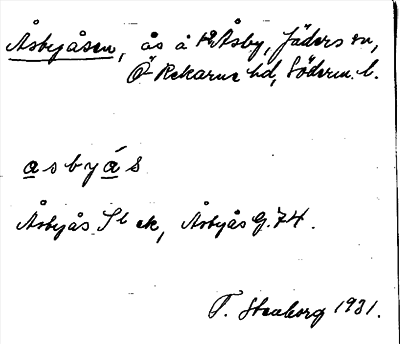 Åsbyåsen, ås å Åsby, Jäders sn,
Ö Rekarne hd, Söderm. l.
asbyás
Åsbyås Sl ek, Åsbyås G. 74.
F. Stenborg 1931.